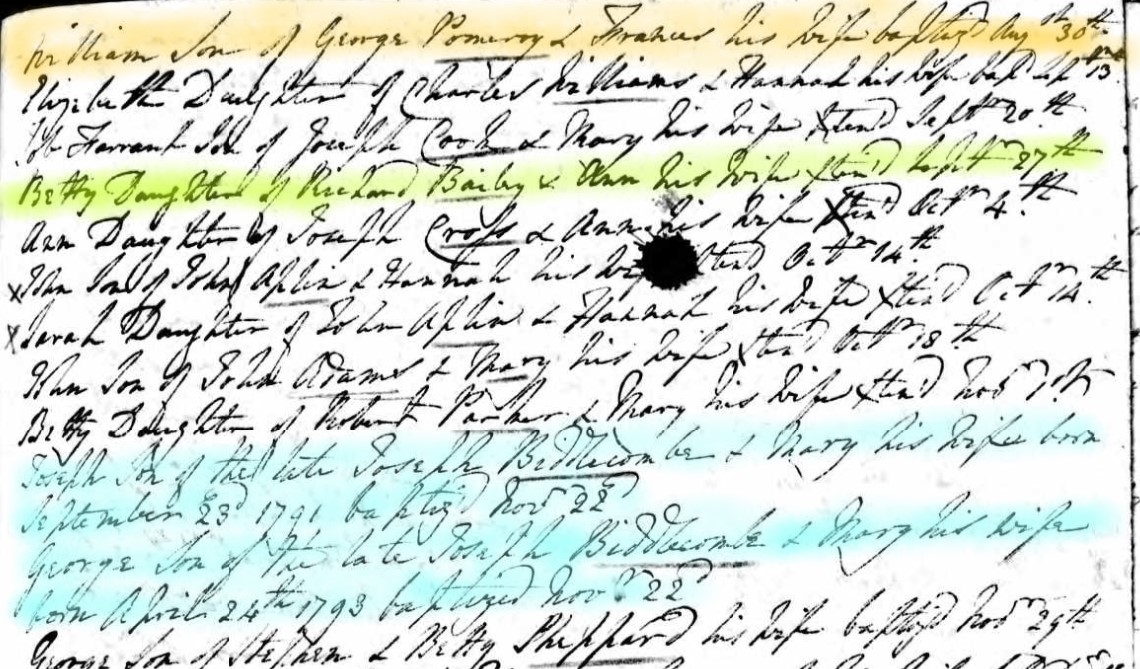 William Son of George Pomeroy & Frances his Wife baptizd Aug st 30th
Elizabeth Daughter of Charles Williams & Hannah his Wife bapd Sept 13th
Job Farrant Son of Joseph Cook & Mary his Wife Xtend Septr 20th
Betty Daughter of Richard Bailey & Ann his Wife Xten'd Septr 27th
Ann Daughter of Joseph Cross & Ann his Wife Xten'd Octr 4th
x John Son of John Aplin & Hannah his Xtend Octr 14th
x Sarah Daughter of John Aplin & Hannah his Wife Xten'd Octr 14th
John Son of John Adams & Mary his Wife Xten'd Octr 18th
Betty Daughter of Robert Parker & Mary his Wife Xten'd Novr
Joseph Son of the late Joseph Biddlecombe & Mary his Wife born
September 23d 1791 baptiz'd Novr 22d
George Son of the late Joseph Biddlecombe & Mary his Wife
born April 24th 1793 baptized Novr 22d
George Son of Stephen & Betty Sheppard his Wife baptizd Novr 29th